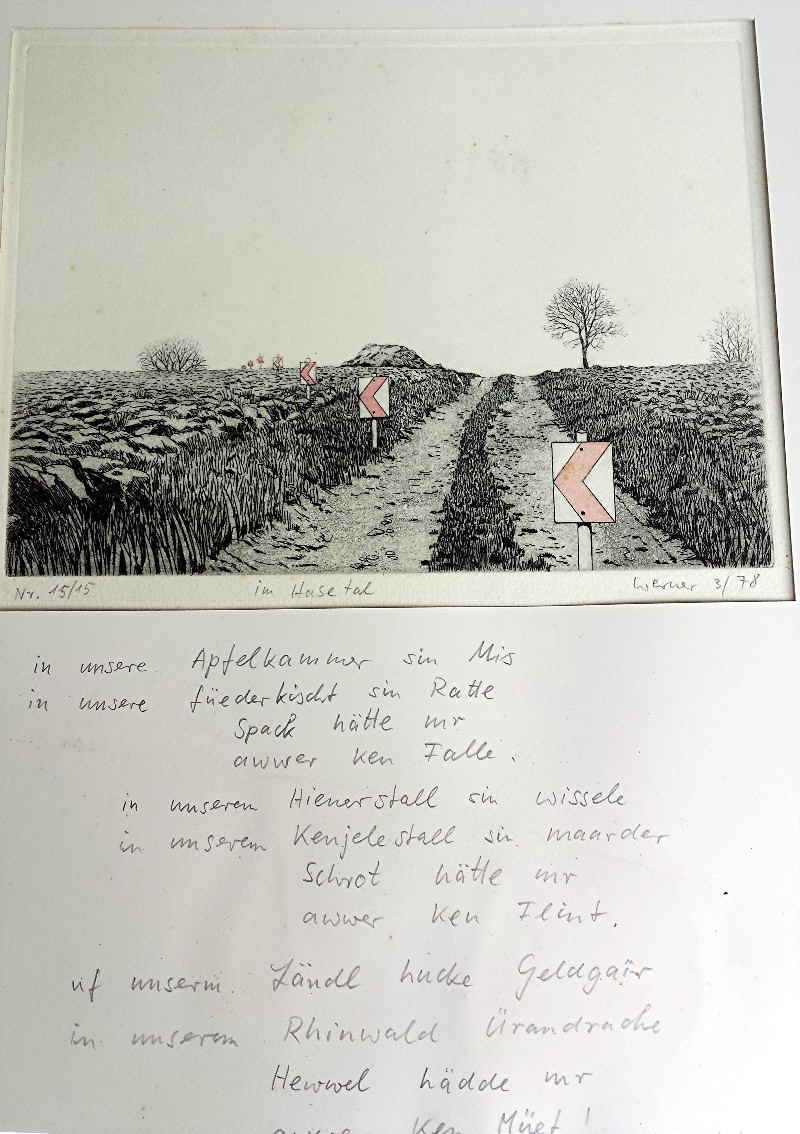 Nr. 15/15 im Hasetal Werner 3/78
in unsere Apfelkammer sin Mis
in unsere füederkischt sin Ratte
Spack hätte mr
awwer ken Falle.
in unserem Hienerstall sin wissele
in unserem Kenjelestall sin maarder
Schrot hätte mr
awwer ken Flint.
uf unserm Ländl hucke Geldgäir
in unserem Rhinwald Ürandrache
Hewwel hädde mr
awwer ken Müet!